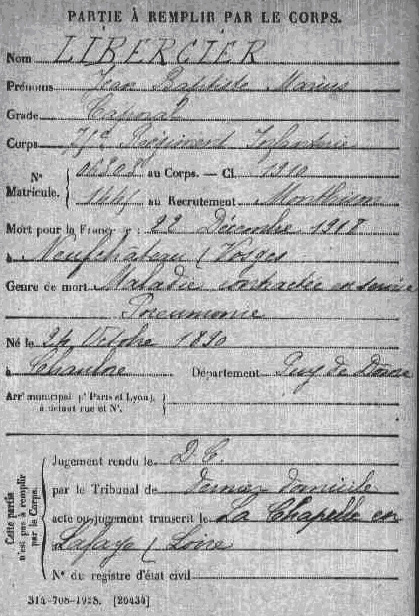 PARTIE À REMPLIR PAR LE CORPS.
Nom LIBERCIER
Prénoms Jean Baptiste Marius
Grade Caporal
Corps Régiment Infanterie
N° au Corps. — Cl. 1910
Matricule. au Recrutement
Mort pour la France le 22 Décembre 1918
à Neufchâteau (Vosges
Genre de mort Maladie contractée en service
Pneumonie
Né le 24 Octobre 1890
à Département Puy de Dôme
Arrᵗ municipal (pʳ Paris et Lyon),
à défaut rue et N°.
Cette partie n'est pas à remplir par le Corps.
Jugement rendu le D. C.
par le Tribunal de dernier domicile
acte ou jugement transcrit le La Chapelle en
Lafaye (Loire
N° du registre d'état civil
314-708-1928. [20434]